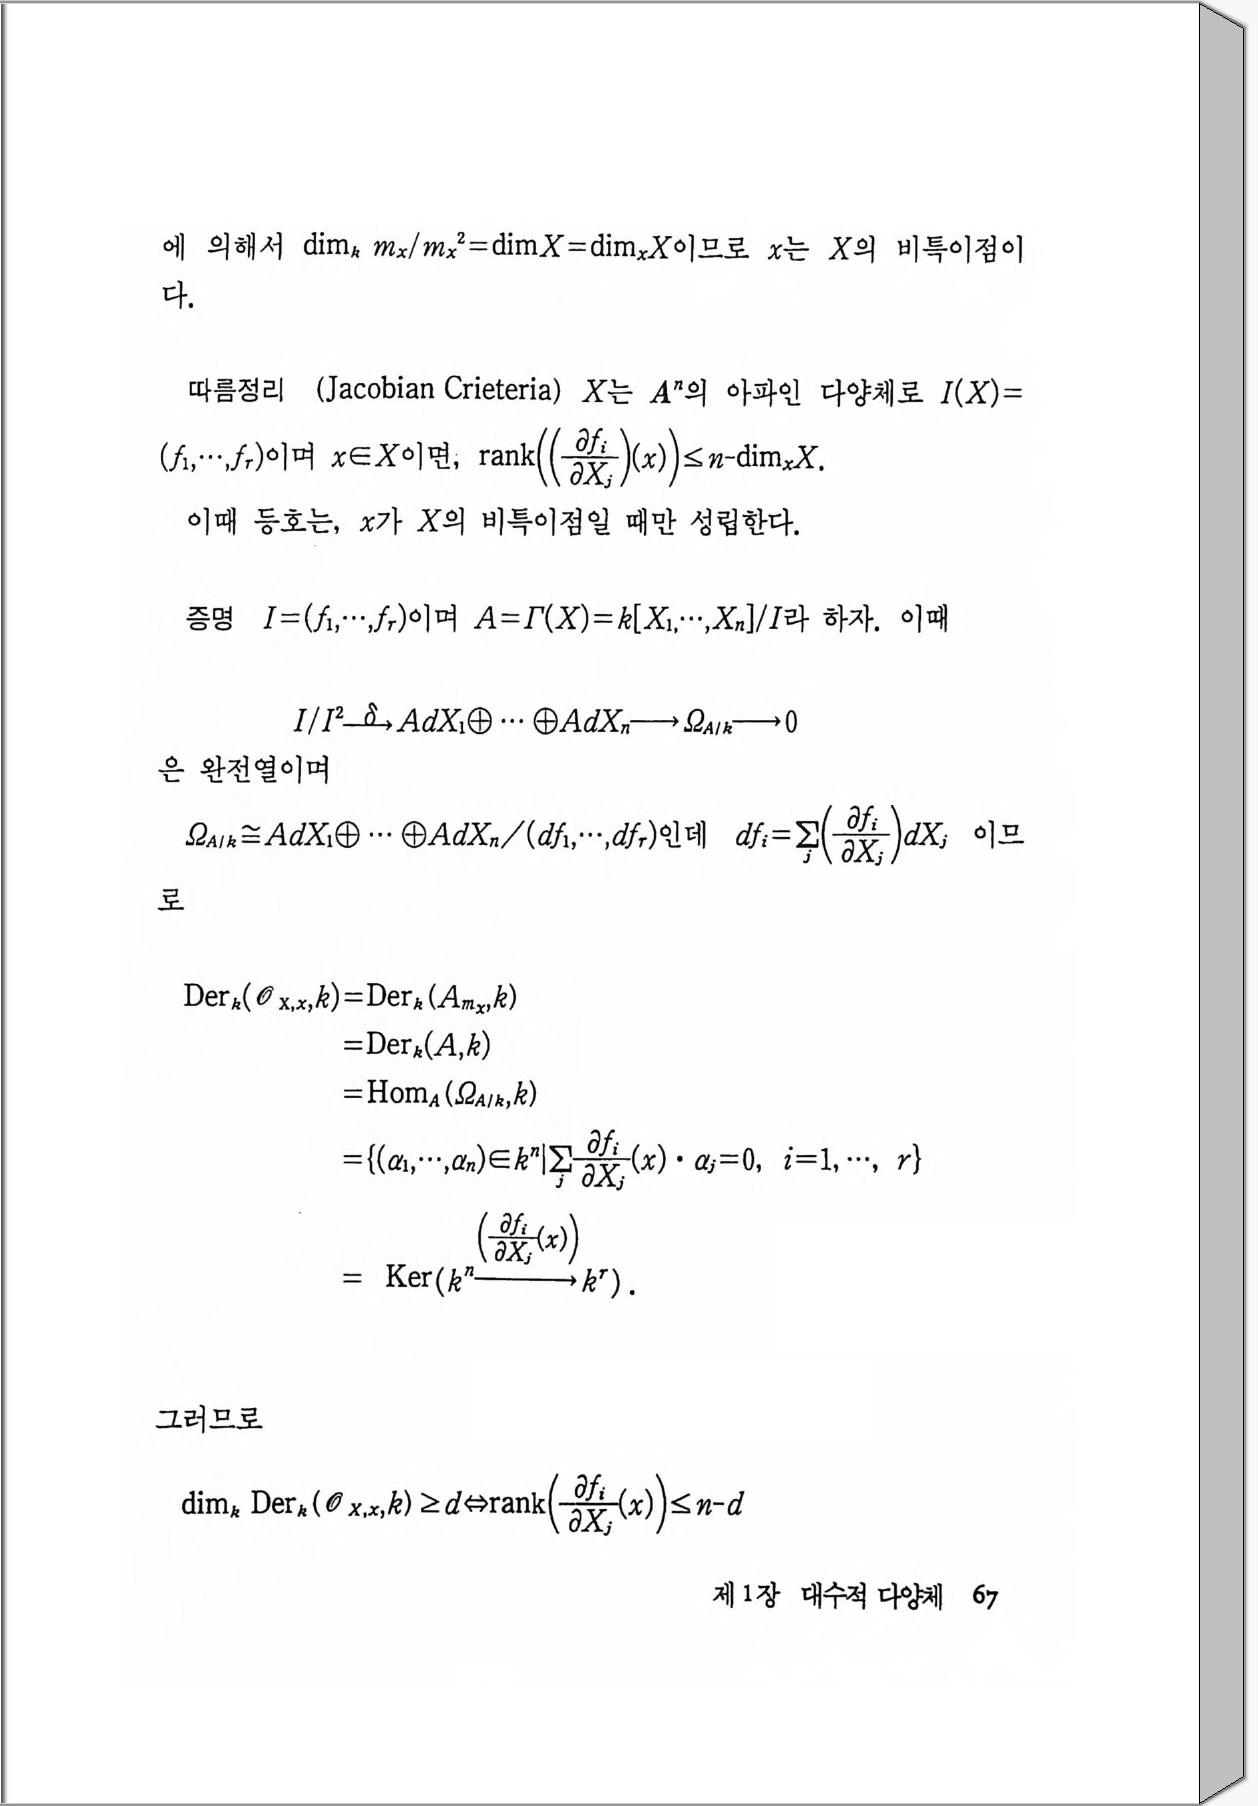 에 의해서 dimₖ mₓ/mₓ²=dimX=dimₓX이므로 x는 X의 비특이점이
다.
따름정리 (Jacobian Crieteria) X는 Aⁿ의 아파인 다양체로 I(X)=
(f₁,⋯,fᵣ)이며 x∈X이면, rank((∂fᵢ/∂Xⱼ)(x))≤n-dimₓX.
이때 등호는, x가 X의 비특이점일 때만 성립한다.
증명 I=(f₁,⋯,fᵣ)이며 A=Γ(X)=k[X₁,⋯,Xₙ]/I라 하자. 이때
I/I² —δ→ AdX₁⊕ ⋯ ⊕AdXₙ⟶Ω_{A/k}⟶0
은 완전열이며
Ω_{A/k}≅AdX₁⊕ ⋯ ⊕AdXₙ/(df₁,⋯,dfᵣ)인데 dfᵢ=∑ⱼ(∂fᵢ/∂Xⱼ)dXⱼ 이므
로
Derₖ(𝒪_{X,x},k)=Derₖ(A_{mₓ},k)
=Derₖ(A,k)
=Hom_A(Ω_{A/k},k)
={(α₁,⋯,αₙ)∈kⁿ|∑ⱼ ∂fᵢ/∂Xⱼ(x)·αⱼ=0, i=1,⋯, r}
= Ker(kⁿ —(∂fᵢ/∂Xⱼ(x))→ kʳ).
그러므로
dimₖ Derₖ(𝒪_{X,x},k)≥d⇔rank(∂fᵢ/∂Xⱼ(x))≤n-d
제 1 장 대수적 다양체 67